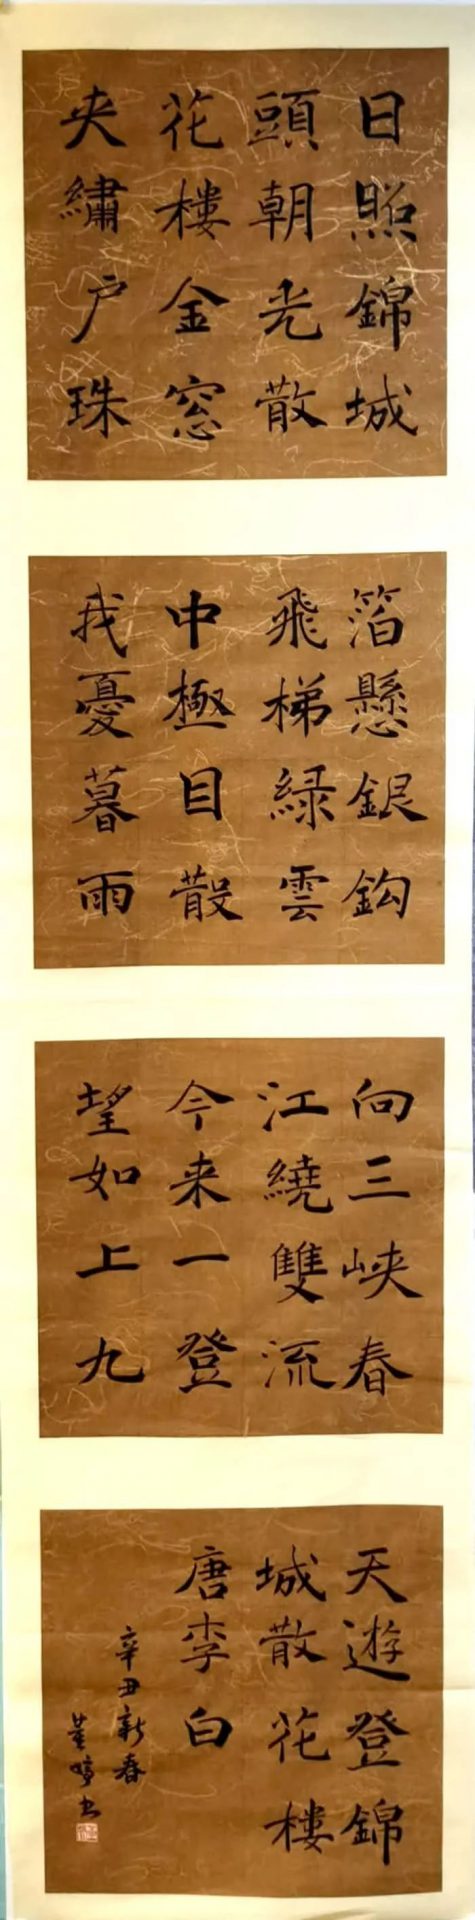 日照錦城
頭朝光散
花樓金窓
夾繡户珠
箔懸銀鈎
飛梯緑雲
中極目散
我憂暮雨
向三峡春
江繞雙流
今来一登
望如上九
天遊登錦
城散花樓
唐李白
辛丑新春